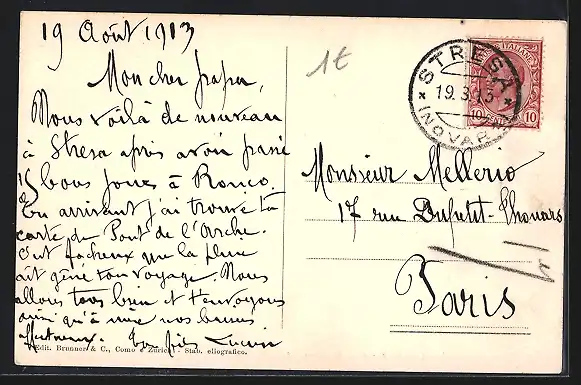 19 Août 1913
Mon cher papa,
Nous voilà de nouveau
à Stresa après avoir passé
15 bons jours à Ronco.
En arrivant j'ai trouvé ta
carte du Pont de l'Arche.
C'est fâcheux que la pluie
ait gêné ton voyage. Nous
allons tous bien et t'envoyons
ainsi qu'à mère nos baisers
affectueux. Ton fils Lucien
Edit. Brunner & C., Como e Zurich - Stab. eliografico.
STRESA
19.8.13
(NOVARA)
POSTE ITALIANE
10 10
Monsieur Mellerio
17 rue Dupetit-Thouars
Paris